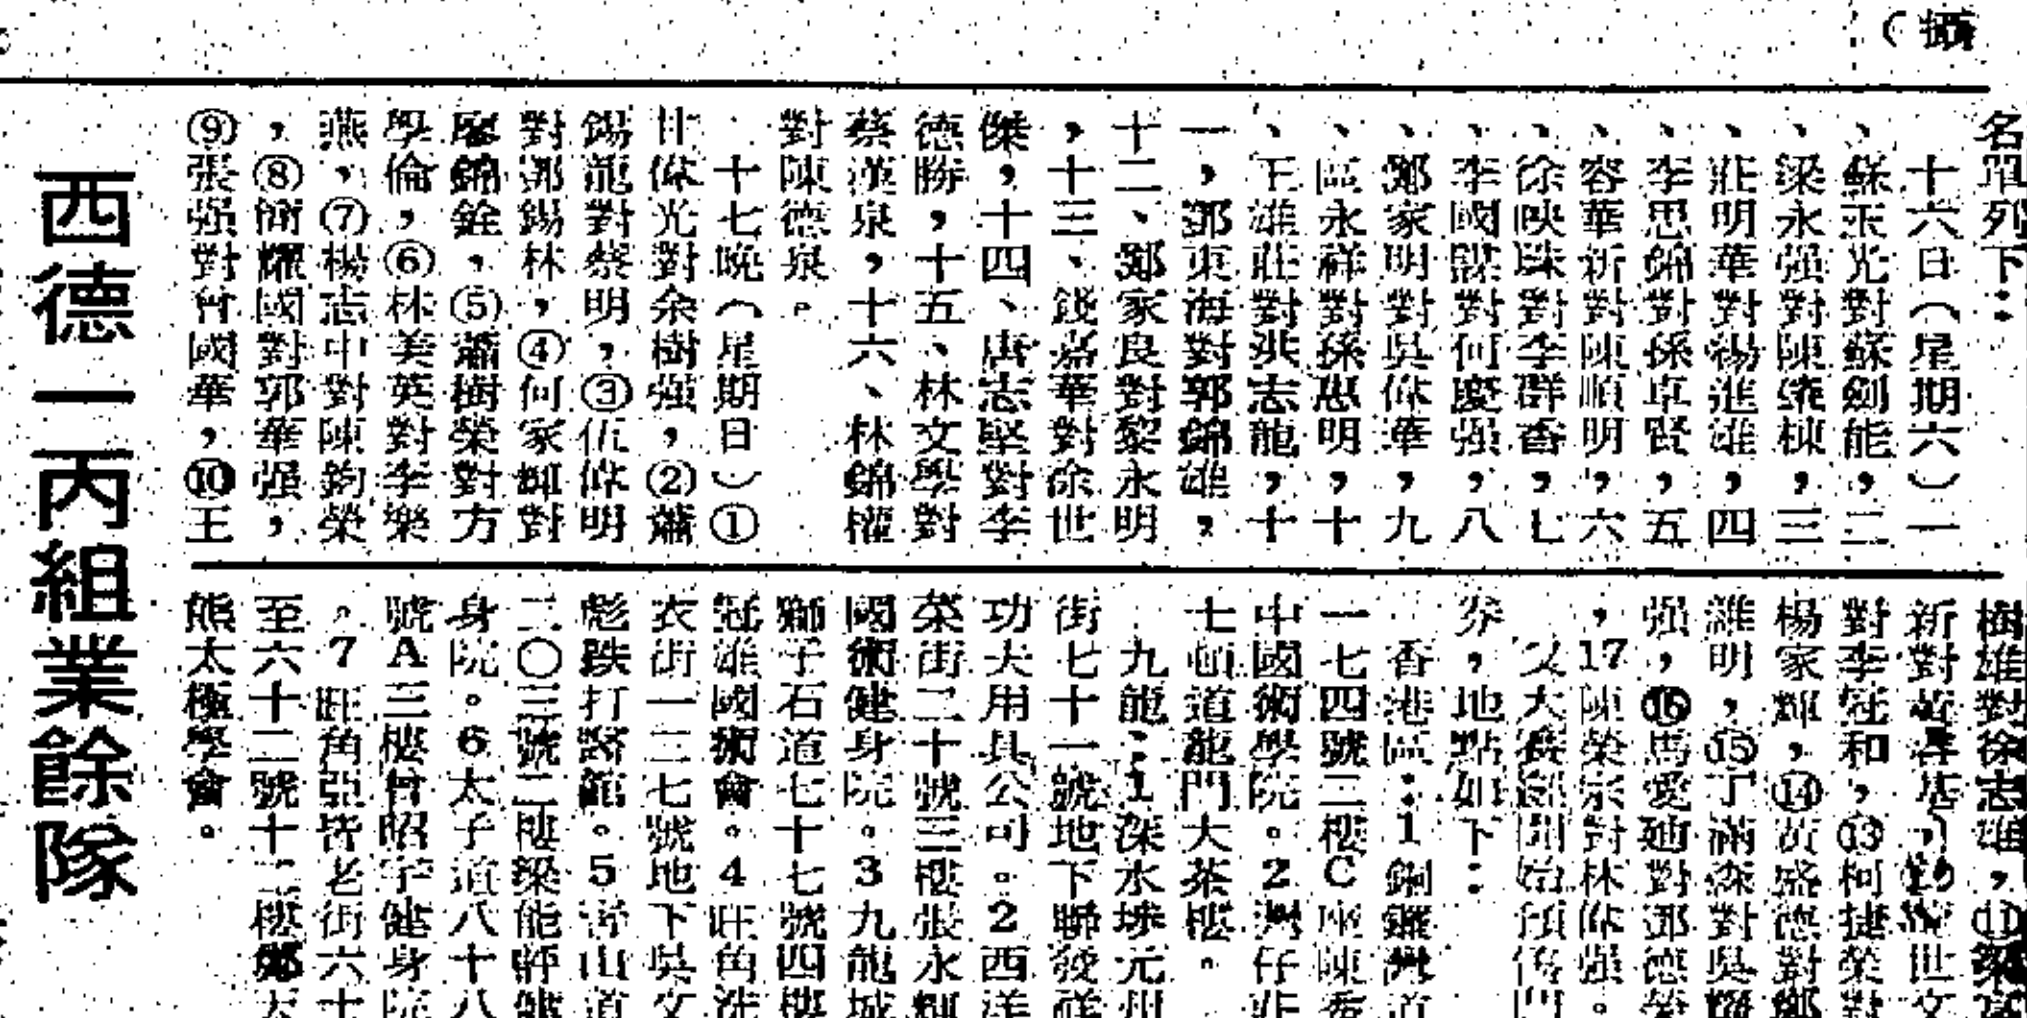 攝）
名單列下：
十六日（星期六）一
、蘇玉光對蘇劍能，二
、梁永强對陳棟，三
、莊明華對楊進雄，四
、李思錦對孫卓賢，五
、容華新對陳順明，六
、徐映珠對李群香，七
、李國謀對何慶强，八
、鄭家明對吳偉華，九
、區永祥對孫惠明，十
、王雄莊對洪志龍，十
一，鄧東海對郭錦雄，
十二、鄭家良對黎永明
，十三、錢嘉華對徐世
傑，十四、唐志堅對李
德勝，十五、林文學對
蔡漢泉，十六、林錦權
對陳德泉。
十七晚（星期日）①
甘偉光對余樹强，②蕭
錫龍對蔡明，③伍偉明
對鄧錫林，④何家輝對
廖錦銓，⑤蕭樹榮對方
學倫，⑥林美英對李樂
燕，⑦楊志中對陳鈞榮
，⑧簡耀國對郭華强，
⑨張强對曾國華，⑩王
樹雄對徐志雄，⑪梁
新對黃基，⑫世文
對李冠和，⑬柯捷榮對
楊家輝，⑭黃盛德對鄭
維明，⑮丁滿森對吳耀
强，⑯馬愛廸對鄧德榮
，17陳榮宗對林偉强。
又大會經開始預售門
券，地點如下：
香港區：1銅鑼灣道
一七四號三樓C座陳秀
中國術學院。2灣仔菲
七頓道龍門大茶樓。
九龍：1深水埗元州
街七十一號地下聯發祥
功夫用具公司。2西洋
菜街二十號三樓張永輝
國術健身院。3九龍城
獅子石道七十七號四樓
冠雄國術會。4旺角洗
衣街一二七號地下吳文
彪跌打醫館。5山道
二〇三號二樓梁能評健
身院。6太子道八十八
號A三樓曾昭宇健身院
。7旺角亞皆老街六十
至六十二號十二樓鄭天
熊太極學會。
西德一丙組業餘隊